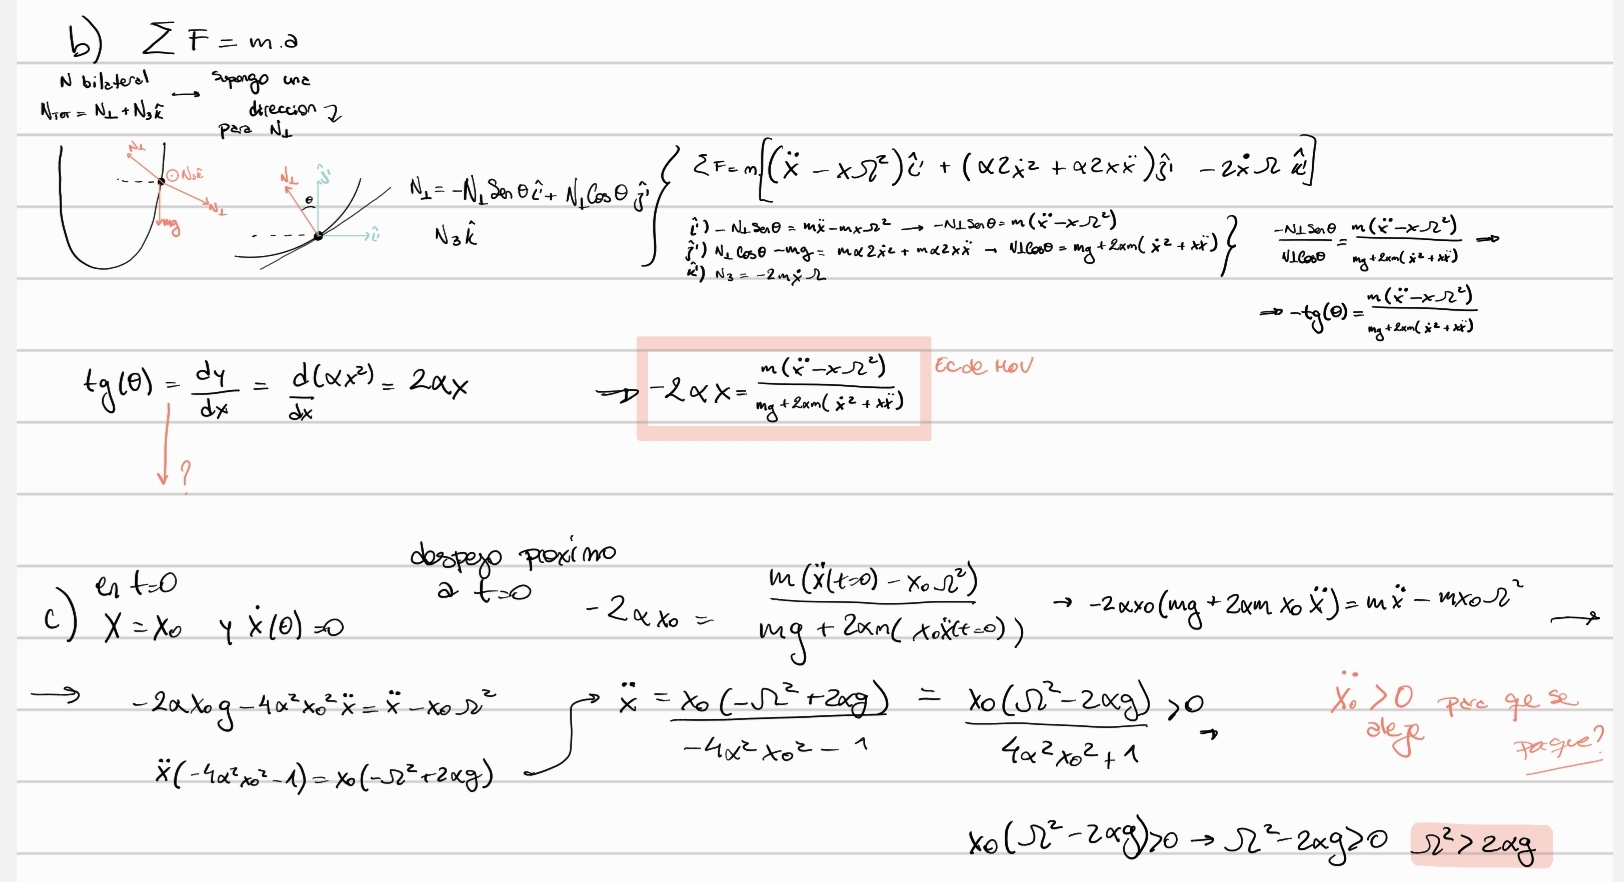 b) ∑ F = m.a
N bilateral → Supongo una
N_TOT = N⊥ + N₃k̂ dirección
para N⊥
N⊥ N₃k̂ N⊥ mg
N⊥ θ ĵ' î'
N⊥ = -N⊥ Sen θ î' + N⊥ Cos θ ĵ'
N₃ k̂
∑F = m[(ẍ - xΩ²) î' + (α2ẋ² + α2xẍ) ĵ' - 2ẋΩ k̂']
î') - N⊥ Sen θ = mẍ - mxΩ² → -N⊥ Sen θ = m(ẍ - xΩ²)
ĵ') N⊥ Cos θ - mg = mα2ẋ² + mα2xẍ → N⊥ Cos θ = mg + 2αm(ẋ² + xẍ)
k̂') N₃ = -2mẋΩ
-N⊥ Sen θ / N⊥ Cos θ = m(ẍ - xΩ²) / mg + 2αm(ẋ² + xẍ) ⇒
⇒ -tg(θ) = m(ẍ - xΩ²) / mg + 2αm(ẋ² + xẍ)
tg(θ) = dy/dx = d(αx²)/dx = 2αx ⇒ -2αx = m(ẍ - xΩ²) / mg + 2αm(ẋ² + xẍ) Ec de Mov
?
c) en t=0
X = x₀ y ẋ(0) = 0
despejo proximo
a t=0
-2αx₀ = m(ẍ(t=0) - x₀Ω²) / mg + 2αm(x₀ẍ(t=0)) → -2αx₀(mg + 2αm x₀ẍ) = mẍ - mx₀Ω² →
→ -2αx₀g - 4α²x₀²ẍ = ẍ - x₀Ω²
ẍ(-4α²x₀² - 1) = x₀(-Ω² + 2αg)
→ ẍ = x₀(-Ω² + 2αg) / -4α²x₀² - 1 = x₀(Ω² - 2αg) / 4α²x₀² + 1 > 0 →
ẍ₀ > 0 para qe se
aleje
paque?
x₀(Ω² - 2αg) > 0 → Ω² - 2αg > 0 Ω² > 2αg